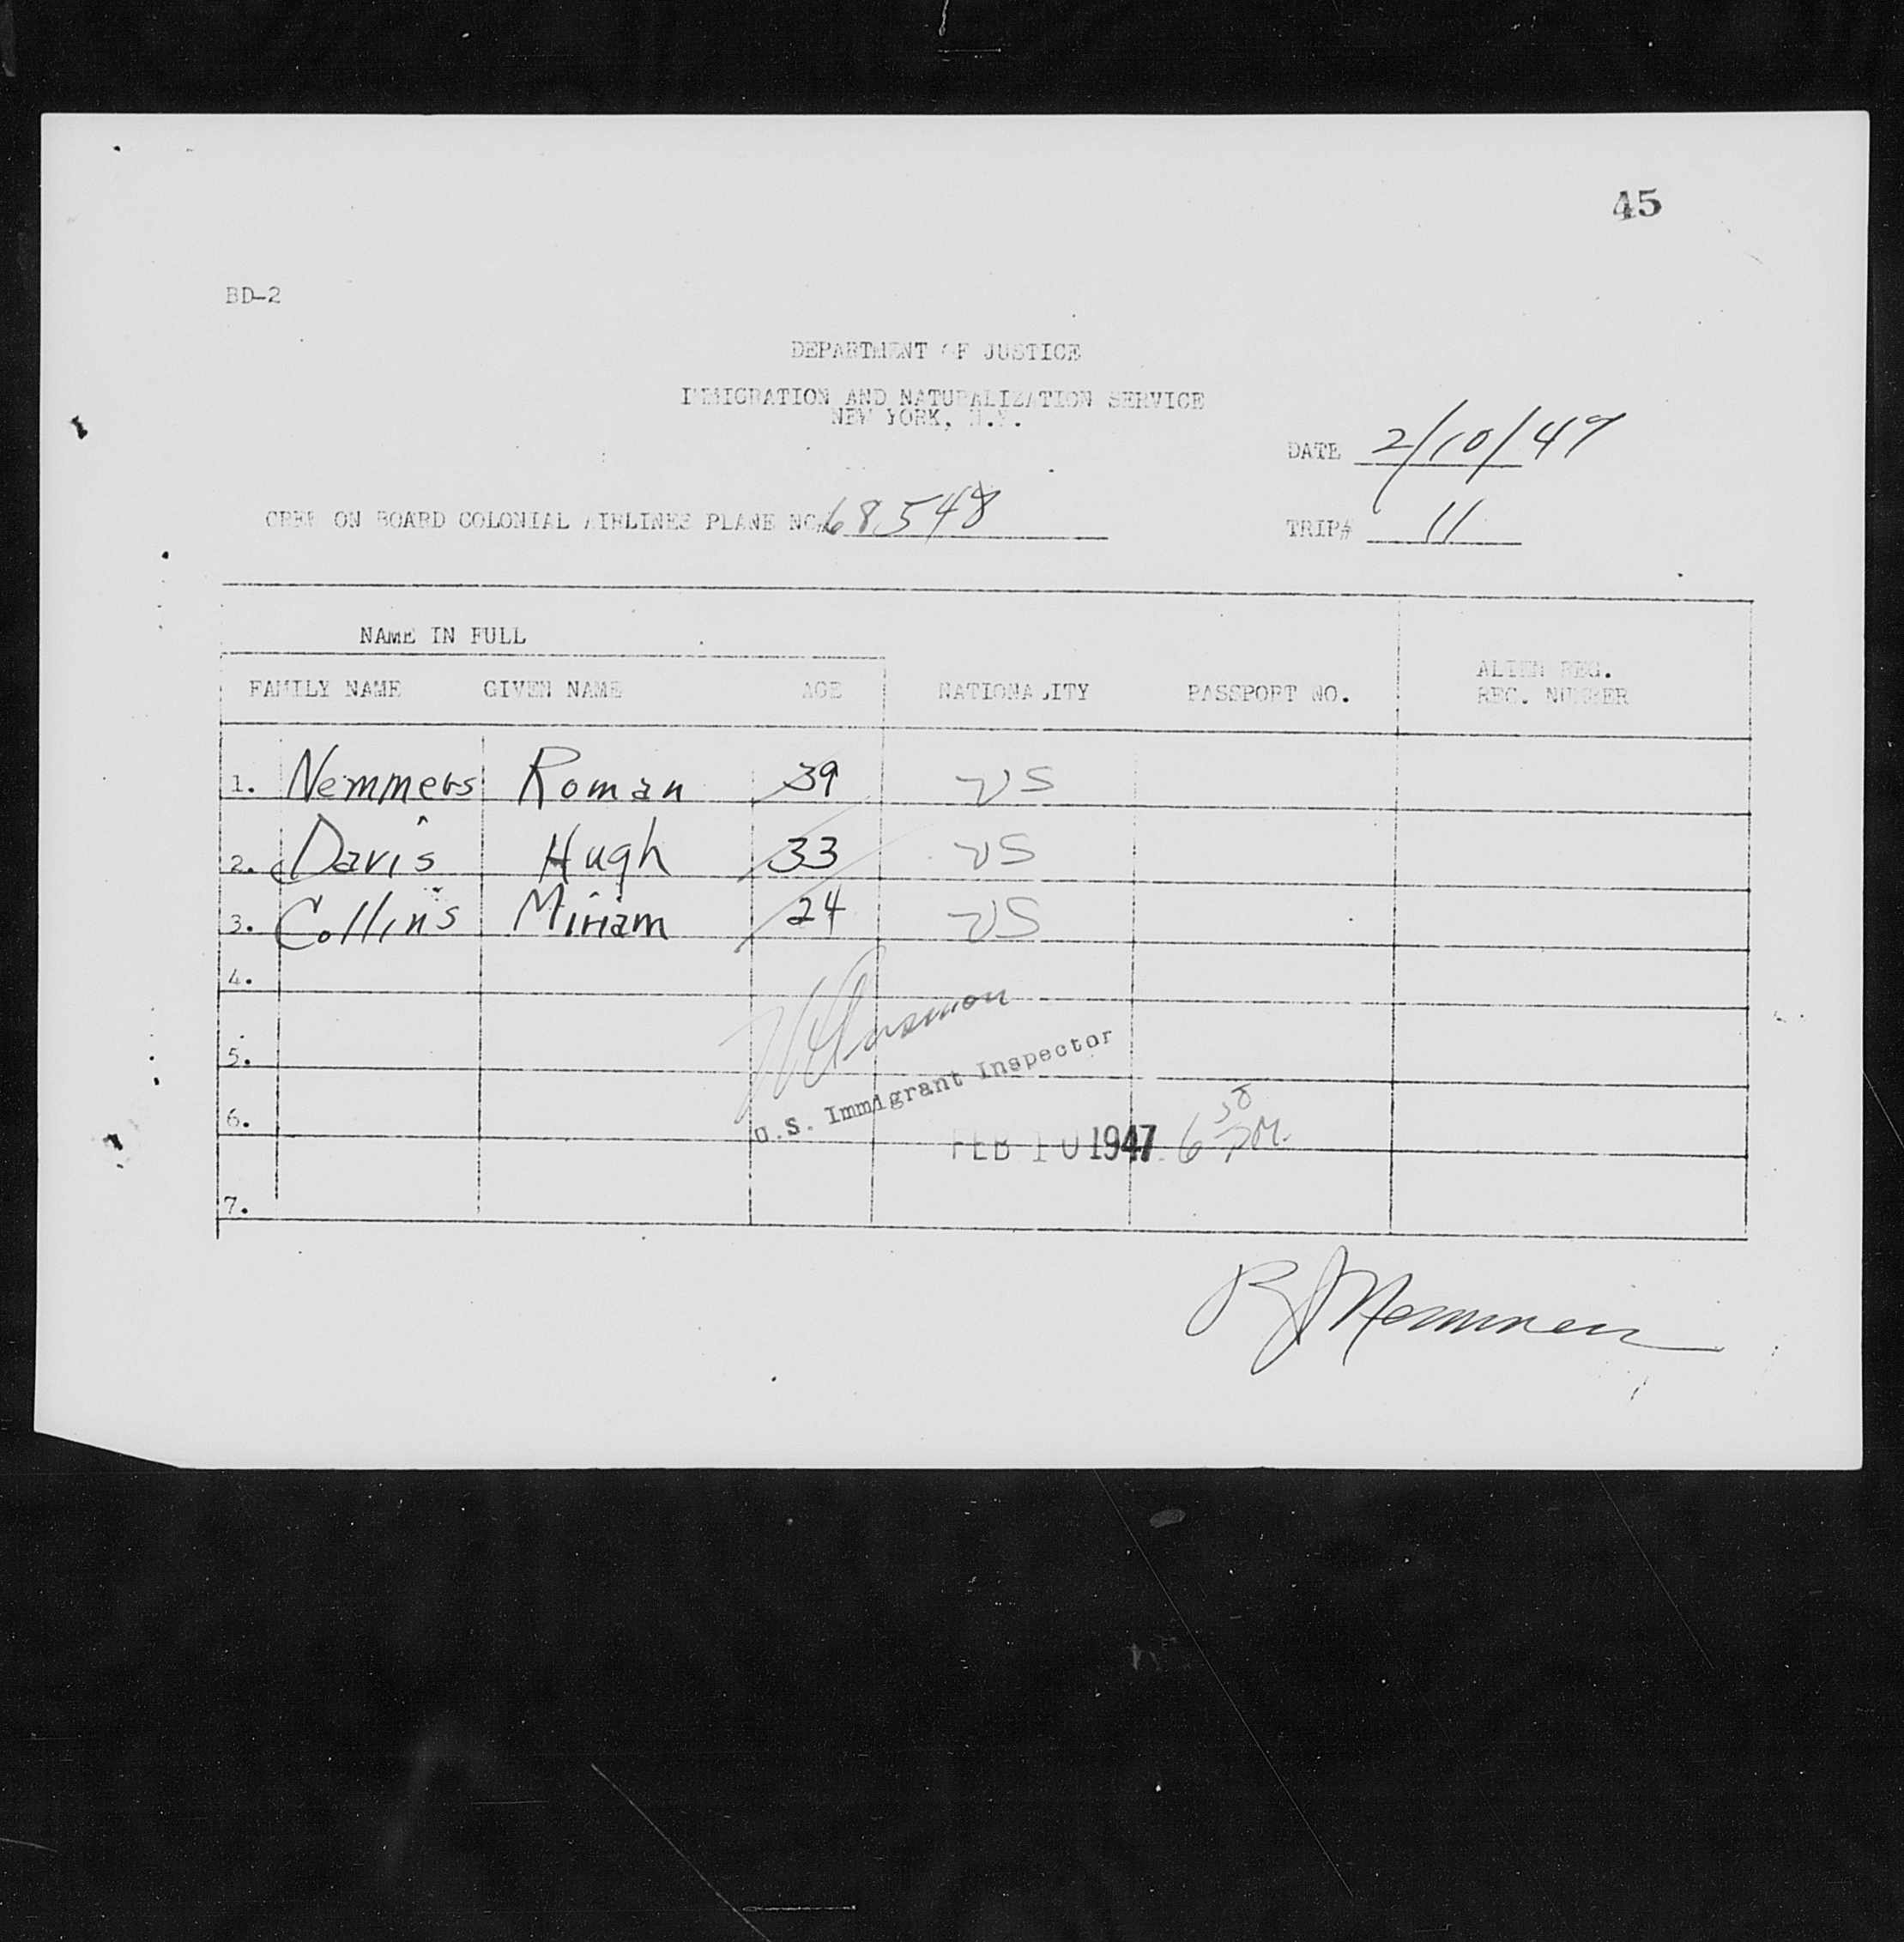 45
BD-2
DEPARTMENT OF JUSTICE
IMMIGRATION AND NATURALIZATION SERVICE
NEW YORK, N.Y.
DATE 2/10/47
CREW ON BOARD COLONIAL AIRLINES PLANE NO. 68548
TRIP# 11
NAME IN FULL
FAMILY NAME GIVEN NAME AGE NATIONALITY PASSPORT NO. ALIEN REG. REG. NUMBER
1. Nemmers Roman 39 US
2. Davis Hugh 33 US
3. Collins Miriam 24 US
4.
5.
U.S. Immigrant Inspector
6.
FEB 10 1947 6 30 PM.
7.
RJ Nemmers